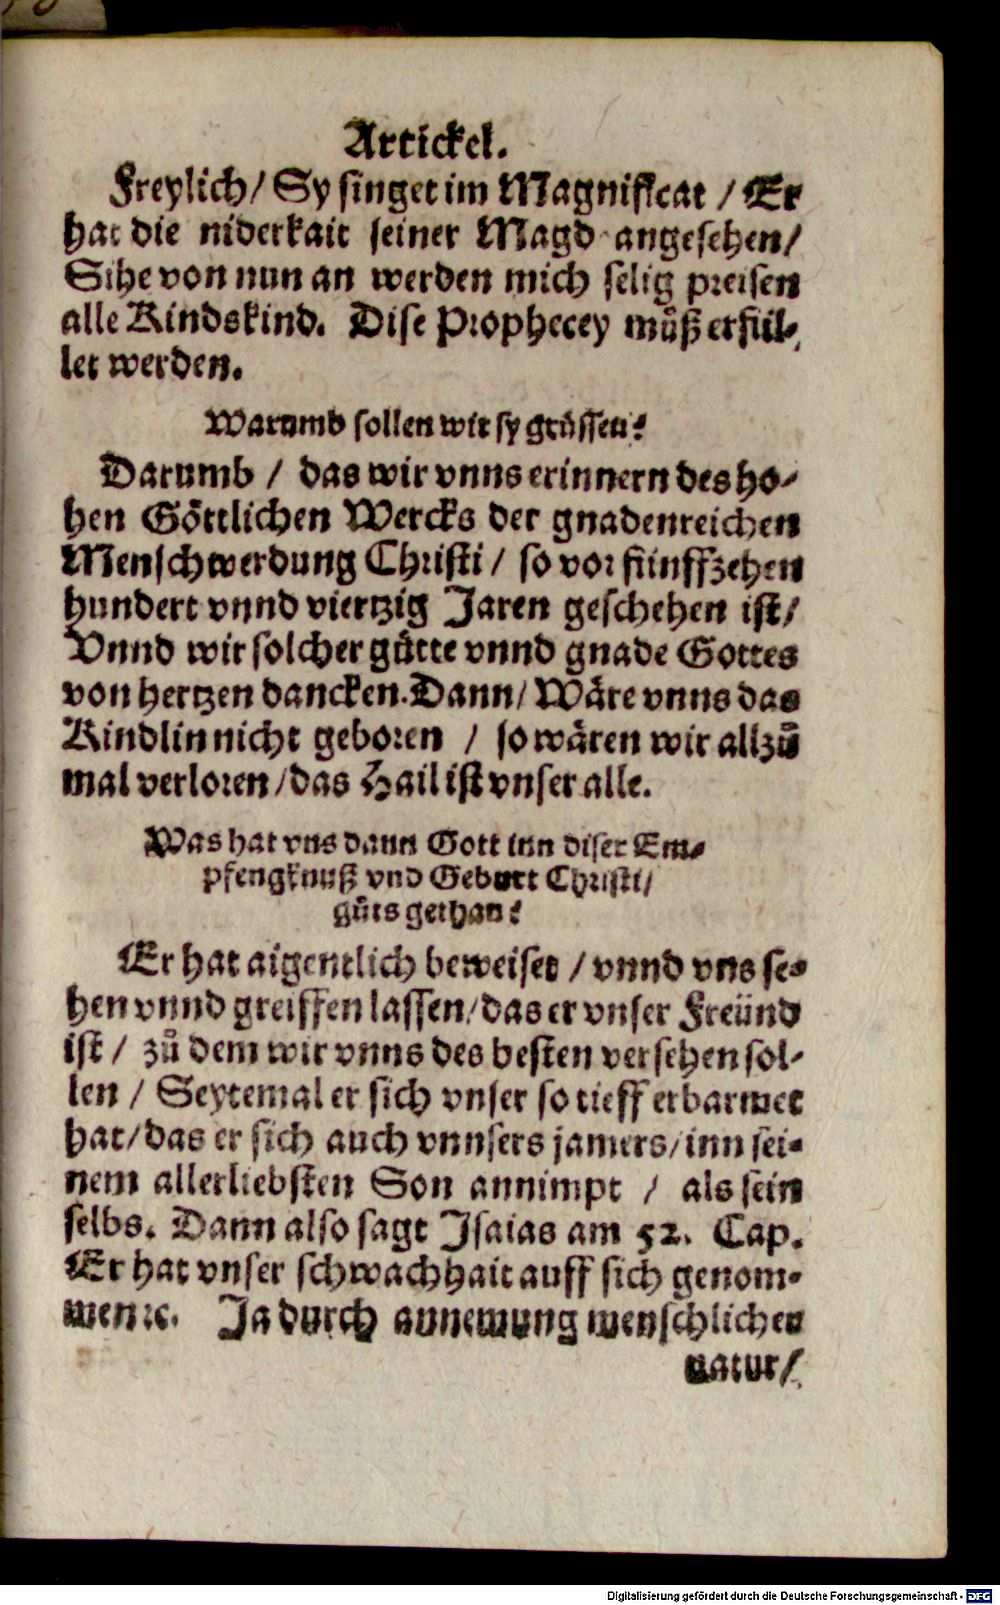 Artickel.
Freylich/ Sy singet im Magnificat / Er
hat die niderkait seiner Magd angesehen/
Sihe von nun an werden mich selig preisen
alle Kindskind. Dise Prophecey muͦß erfül-
let werden.
Warumb sollen wir sy gruͤssen?
Darumb / das wir vnns erinnern des ho-
hen Goͤttlichen Wercks der gnadenreichen
Menschwerdung Christi / so vor fünffzehen
hundert vnnd viertzig Jaren geschehen ist/
Vnnd wir solcher guͤtte vnnd gnade Gottes
von hertzen dancken. Dann/ Waͤre vnns das
Kindlin nicht geboren / so waͤren wir allzuͦ
mal verloren/das Hail ist vnser alle.
Was hat vns dann Gott inn diser Em-
pfengknuß vnd Geburt Christi/
guͦts gethan?
Er hat aigentlich beweiset / vnnd vns se-
hen vnnd greiffen lassen/das er vnser Freünd
ist / zuͦ dem wir vnns des besten versehen sol-
len / Seytemal er sich vnser so tieff erbarmet
hat/das er sich auch vnnsers jamers/inn sei-
nem allerliebsten Son annimpt / als sein
selbs. Dann also sagt Isaias am 52. Cap.
Er hat vnser schwachhait auff sich genom-
men ꝛc. Ja durch annemung menschlichen
natur/
Digitalisierung gefördert durch die Deutsche Forschungsgemeinschaft - DFG